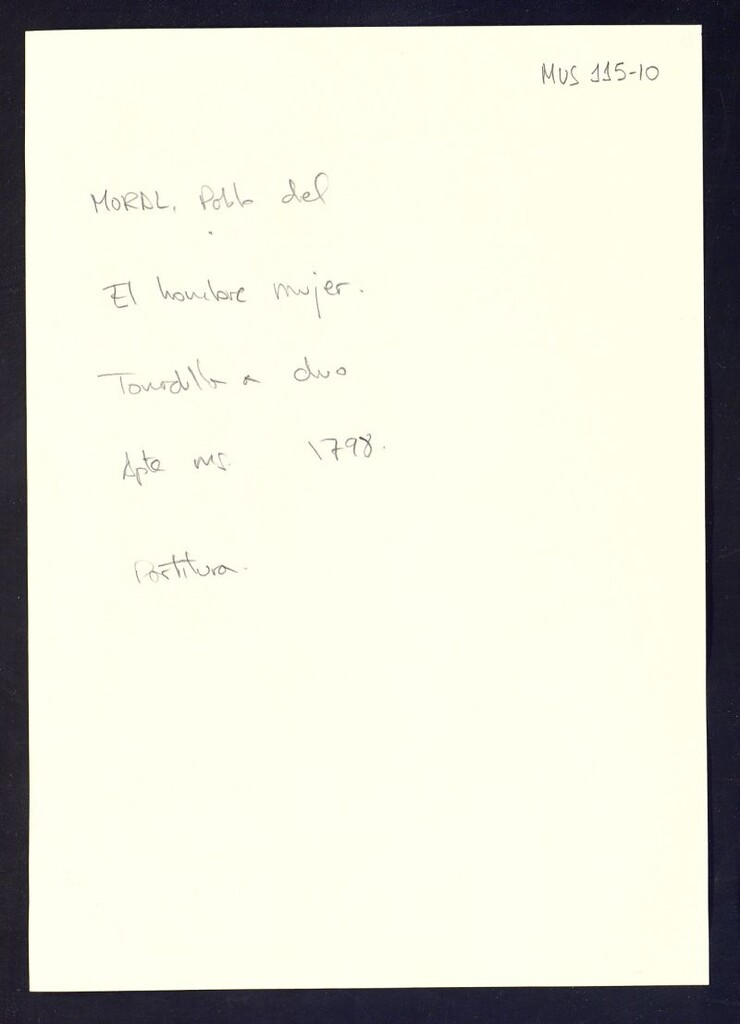 MUS 115-10
MORAL, Pablo del
El hombre mujer.
Tonadilla a duo
Apte ms. 1798.
Partitura.